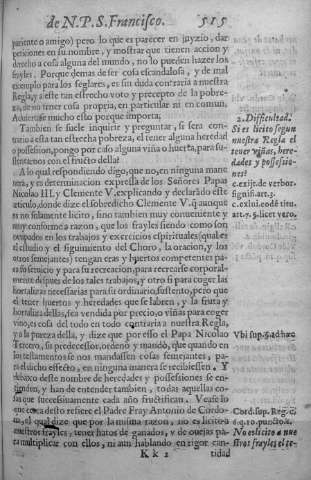 de N. P. S. Francisco. 515
pariente o amigo) pero lo que es parecer en juyzio, dar
peticiones en su nombre, y mostrar que tienen accion y
derecho a cosa alguna del mundo, no lo pueden hazer los
frayles. Porque demas de ser cosa escandalosa, y de mal
exemplo para los seglares, es sin duda contraria a nuestra
Regla, y a este tan estrecho voto y precepto de la pobre-
za, de no tener cosa propria, en particular ni en comun.
Adviertase mucho esto porque importa;
Tambien se suele inquirir y preguntar, si sera con-
trario a esta tan estrecha pobreza, el tener alguna heredad
o possession, pongo por caso alguna viña o huerta, para su-
stentarnos con el fructo della?
A lo qual respondiendo digo, que no, en ninguna mane
ra, y es determinacion expressa de los Señores Papas
Nicolao III. y Clemente V. explicando y declarando este
articulo, donde dize el sobredicho Clemente V. q̃ aunque
es no solamente licito, sino tambien muy conveniente y
muy conforme a razon, que los frayles siendo como son
ocupados en los trabajos y exercicios espirituales (qual es
el estudio y el siguimiento del Choro, la oracion, y los
otros semejantes) tengan eras y huertos competentes pa-
ra su servicio y para su recreacion, para recrearse corporal-
mente despues de los tales trabajos, y otro si para coger las
hortalizas necessarias para su ordinario sustento, pero que
el tener huertos y heredades que se labren, y la fruta y
hortaliza dellas, sea vendida por precio, o viñas para coger
vino, es cosa del todo en todo contraria a nuestra Regla,
y a la pureza della, y dize que por esso el Papa Nicolao
Tercero, su predecessor, ordenò y mandò, que quando en
los testamentos se nos mandassen cosas semejantes, pa-
ra el dicho efecto, en ninguna manera se recibiessen. Y
debaxo deste nombre de heredades y possessiones se en-
tienden, y han de entender tambien, todas aquellas co-
sas que successivamente cada año fructifican. Y assi lo
que cerca desto refiere el Padre Fray Antonio de Cordo-
va, el qual dize que por la misma razon, no es licito a
nuestros frayles, tener hatos de ganados, y de ovejas pa-
ra multiplicar con ellos, ni aun hablando en rigor can-
Kk 2 tidad
2. Difficultad.
Si es licito segun
nuestra Regla el
tener viñas, here-
dades y possessio-
nes?
c. exijt. de verbor.
signif. art. 3.
c. exivi. eodē titu.
art. 7. §. licet vero.
Vbi sup. §. ad hæc
Cord. sup. Reg. c.
6. q. 10. puncto 2.
No es licito a nue
stros frayles el te-